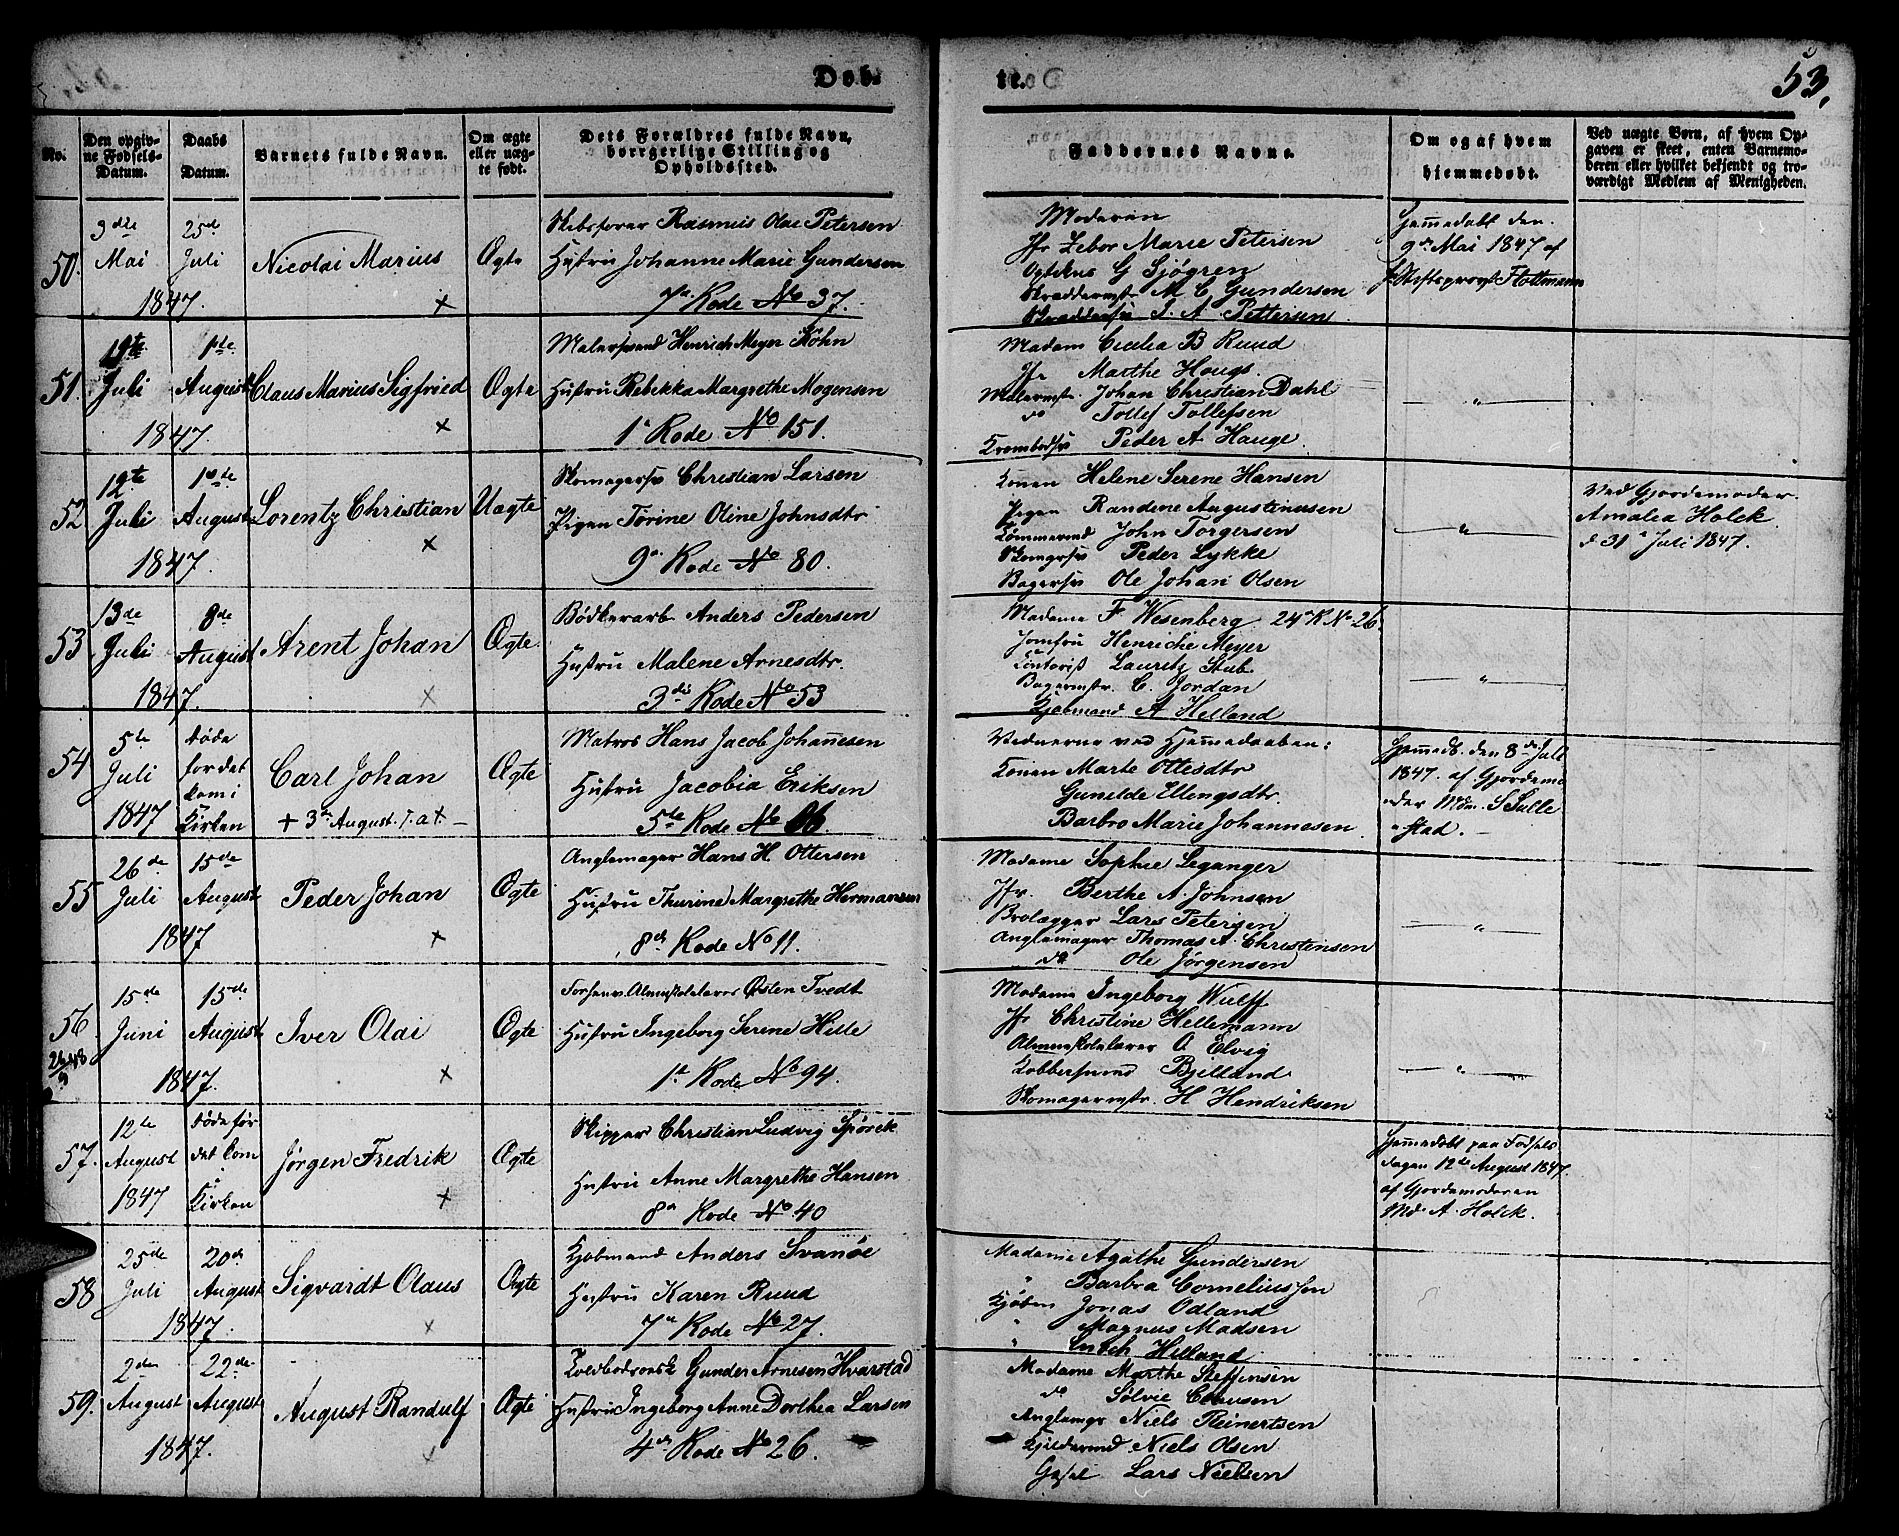 Døb- te.
53,
No.
Den opgiv-
ne Fødsels-
Datum.
Daabs
Datum.
Barnets fulde Navn.
Om ægte
eller uæg-
te født.
Dets Forældres fulde Navn,
borgerlige Stilling og
Opholdssted.
Faddernes Navne.
Om og af hvem
hjemmedøbt.
Ved uægte Børn, af hvem Op-
gaven er skeet, enten Barnemo-
deren eller hvilket bekjendt og tro-
værdigt Medlem af Menigheden.
50.
9de
Mai
1847.
25de
Juli
Nicolai Marius
+
Ægte
Skibsfører Rasmus Olai Petersen
Hustru Johanne Marie Gundersen
7de Rode No 37.
Moderen
Jfr Zebor Marie Petersen
G Sjøgren
Skræddermstr M C Gundersen
Skræddersv J. A Pettersen
Hjemedøbt den
9de Mai 1847 af
Stiftsprovst Flottmann
51.
Juli
1847.
1ste
August
Claus Marius Sigfried
+
Ægte
Malersvend Henrich Meyer Køhn
Hustru Rebekka Margrethe Mogensen
1e Rode No 151.
Madam Cecilia B Ruud
Jfr Marthe Houge.
Malermstr. Johan Christian Dahl
do Tollef Tollefsen
Krambodsv Peder A Hauge
— " —
52
12te
Juli
1847.
1ste
August
Lorentz Christian
+
Uægte
Skomagersv Christian Larsen
Pigen Torine Oline Johnsdtr
9de Rode No 80.
Konen Helene Serene Hansen
Pigen Randene Augustinusen
Tømmermd John Torgersen
Skomgrsv Peder Lykke
Bagersv Ole Johan Olsen
— " —
Ved Gjordemoder
Amalia Holck
d 31e Juli 1847.
53
13de
Juli
1847.
8de
August
Arent Johan
+
Ægte.
Bødkerarb Anders Pedersen
Hustru Malene Arnesdtr.
3die Rode No 53
Madame F Wesenberg 24de R No 26.
Jomfru Henriche Meyer
Kontorist Lauritz Stub
Bagermstr. C. Jordan
Kjøbmand A Helland
— " —
54
5te
Juli
1847
døde
før det
kom i
Kirken
Carl Johan
+ 3die August. T. a t. —
Ægte
Matros Hans Jacob Johannesen
Hustru Jacobia Eriksen
5te Rode No 66
Vidnerne ved Hjemedaaben:
Konen Marte Ottesdtr
Gunilde Ellengsdtr.
Barbro Marie Johannesen
Hjemedb. den 8de Juli
1847. af Gjordemo
der Mdm. S Sulle
stad. —
55
26de
Juli
1847
15de
August
Peder Johan
+
Ægte
Anglemager Hans H. Ottersen
Hustru Thurine Margrethe Hermansen
8de Rode No 11.
Madame Sophie Leganger
Jfr. Berthe A. Johnsen
Brolægger Lars Petersen
Anglemager Thomas A. Christensen
do Ole Jørgensen
— " —
56
15de
Juni
1847.
15de
August
Iver Olai
+
Ægte
Forhenv. Almueskolelærer Østen Tvedt
Hustru Ingeborg Serene Hille
1te Rode No 94.
Madame Ingeborg Wulff
Jfr Christine Hellemann
Almueskolelærer O Elvig
Kobbersmed Bjelland
Skomagermstr. H Hendriksen
— " —
57.
12te
August
1847
døde før
det kom
i
Kirken
Jørgen Fredrik
+
Ægte
Skipper Christian Ludvig Spørck
Hustru Anne Margrethe Hansen
8de Rode No 40
Hjemedøbt paa Fødsels
dagen 12te August 1847.
af Gjordemoderen
Md. A. Holck.
58
25de
Juli
1847.
20de
August
Sigvardt Olaus
+
Ægte
Kjøbmand Anders Svanøe
Hustru Karen Ruud
7de Rode No 27.
Madame Agathe Gundersen
" Barbra Corneliussen
Kjøbm Jonas Odland
" Magnus Madsen
" Helland
59.
2den
August
1847.
22de
August
August Randulf
+
Ægte
Gunder Arnesen Hvarstad
Hustru Ingeborg Anne Dorthea Larsen
4de Rode No 26.
Madame Marthe Steffensen
do Sølvie Clausen
Anglemgr Niels Reinertsen
Niels Olsen
Lars Nielsen